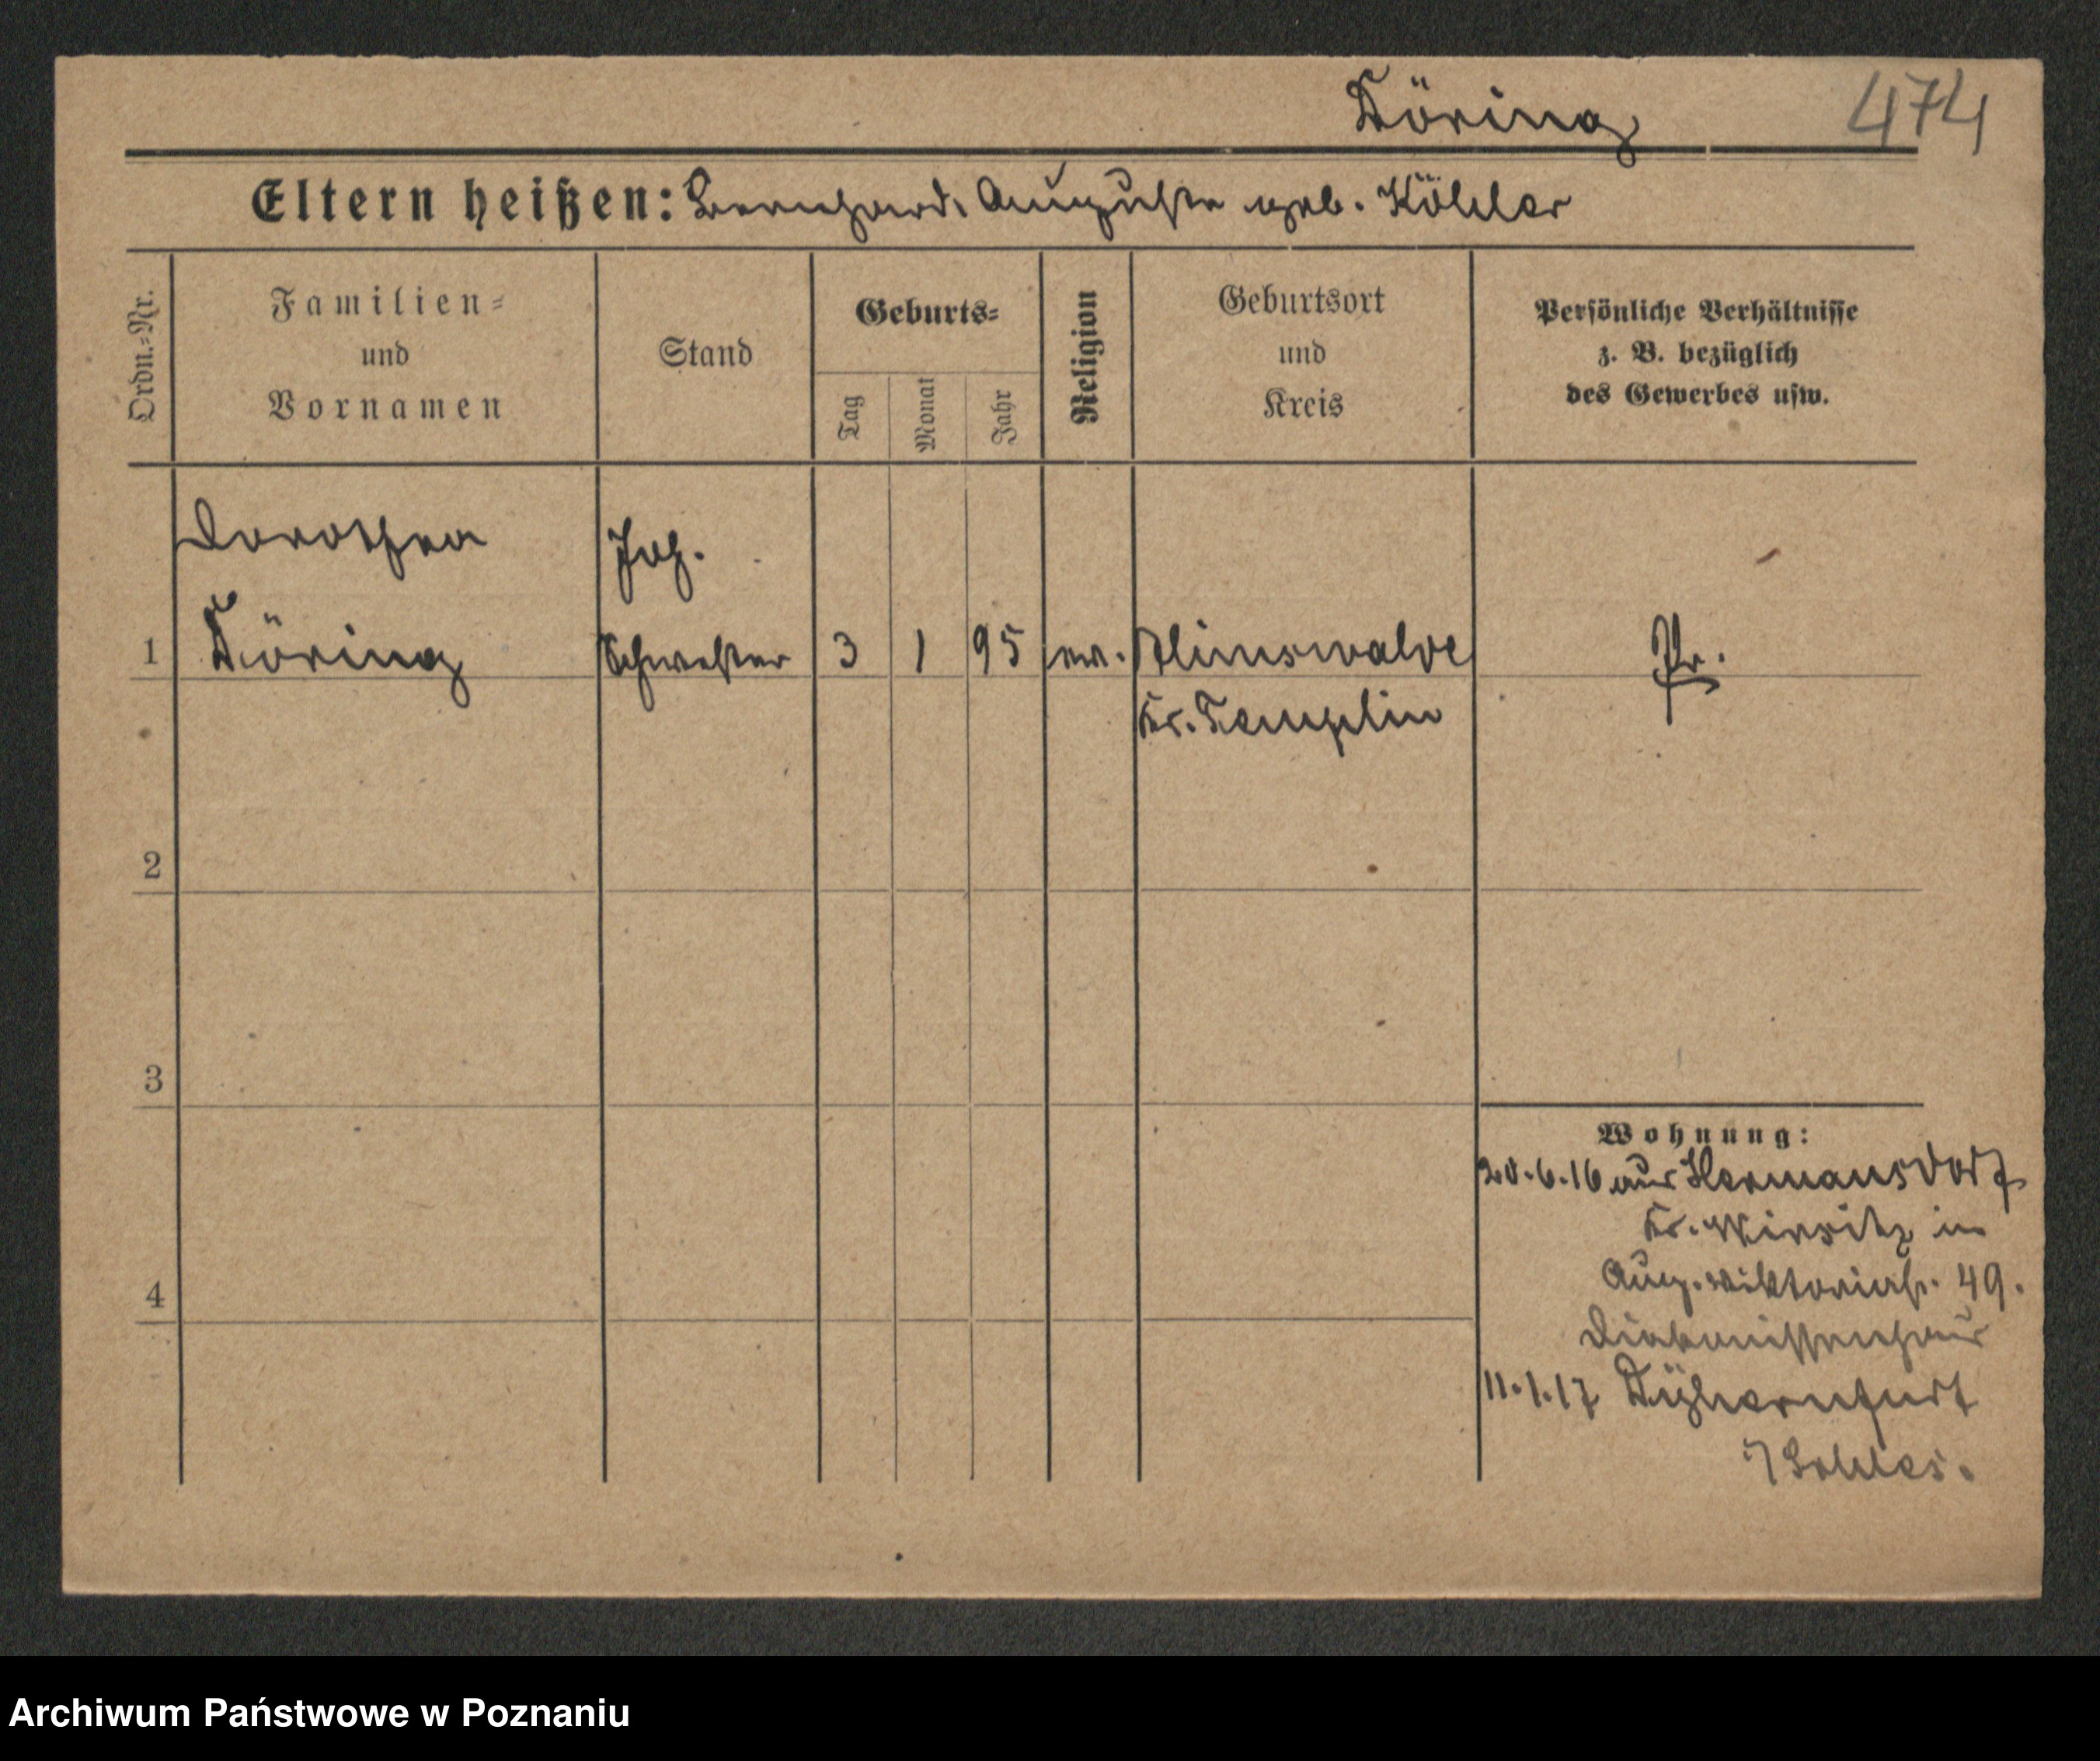 Döring 474
Eltern heißen: Bernhard, Auguste geb. Köhler
Ordn.-Nr.
Familien-
und
Vornamen
Stand
Geburts-
Tag
Monat
Jahr
Religion
Geburtsort
und
Kreis
Persönliche Verhältnisse
z. B. bezüglich
des Gewerbes usw.
Dorothea
Döring
1
Schwester
3 1 95 ev.
Kr. Templin
Pr.
2
3
4
Wohnung:
20.6.16 aus Hermansdorf
Kr. Wirsitz in
Aug. Viktoriastr. 49.
Diakonissenhaus
11.1.17 Dyhernfurt
Archiwum Państwowe w Poznaniu